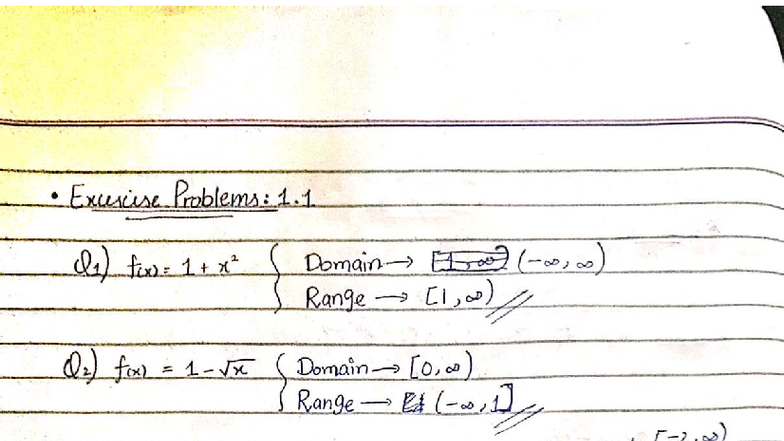 • Excercise Problems: 1.1
Q1) f(x) = 1 + x² { Domain → (-∞, ∞)
Range → [1, ∞)
Q2) f(x) = 1 - √x { Domain → [0, ∞)
Range → (-∞, 1]
[-2, ∞)